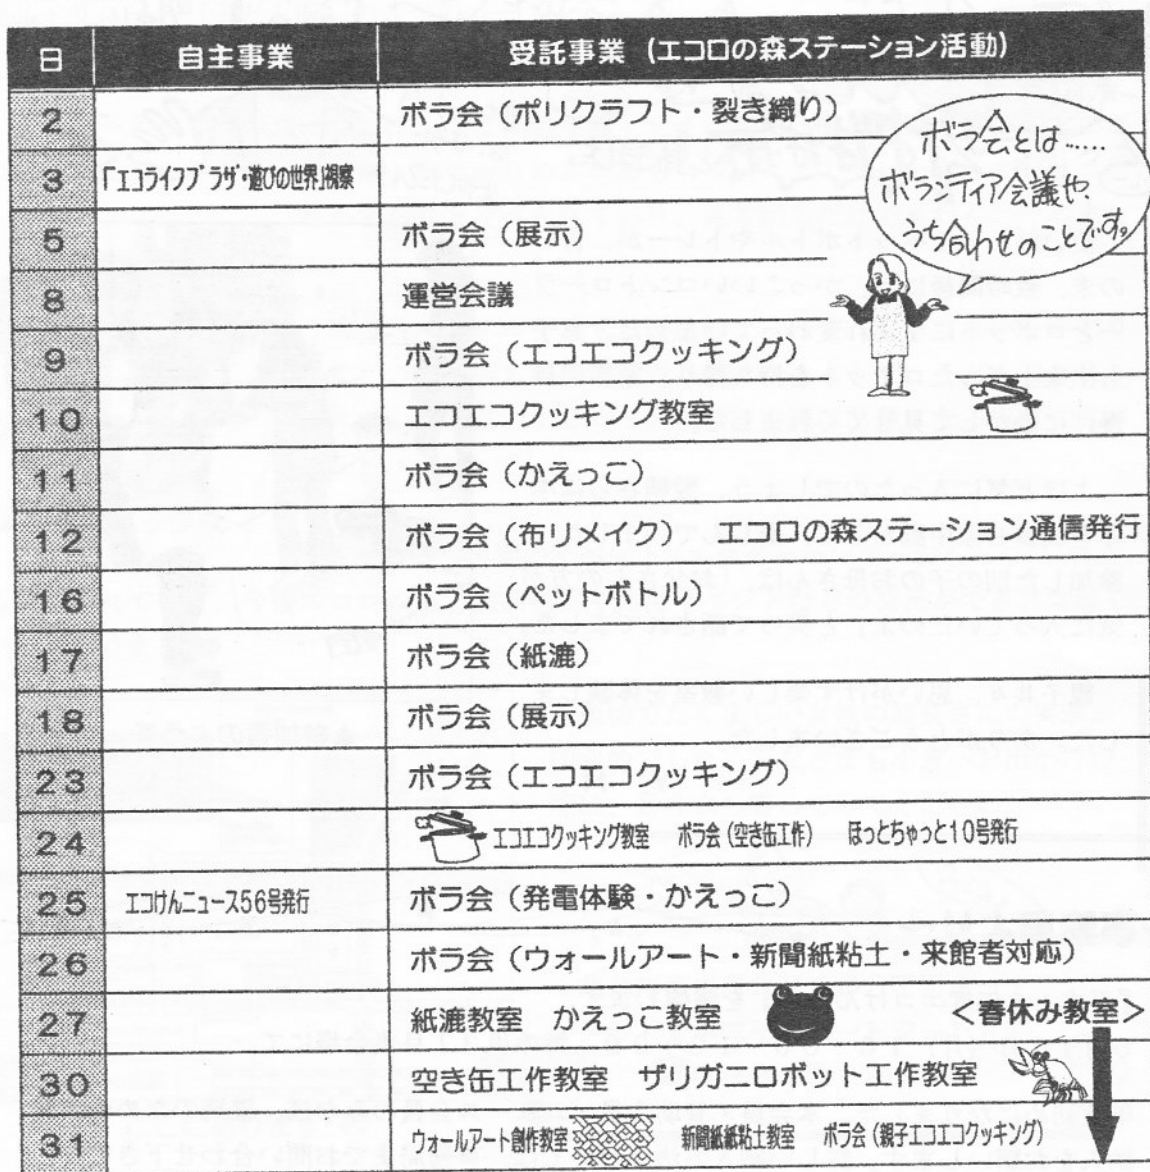 日 自主事業 受託事業（エコロの森ステーション活動）
2 ボラ会（ポリクラフト・裂き織り）
3 「エコライフプラザ・遊びの世界」視察
5 ボラ会（展示）
8 運営会議
9 ボラ会（エコエコクッキング）
10 エコエコクッキング教室
11 ボラ会（かえっこ）
12 ボラ会（布リメイク） エコロの森ステーション通信発行
16 ボラ会（ペットボトル）
17 ボラ会（紙漉）
18 ボラ会（展示）
23 ボラ会（エコエコクッキング）
24 エコエコクッキング教室 ボラ会（空き缶工作） ほっとちゃっと10号発行
25 エコけんニュース56号発行 ボラ会（発電体験・かえっこ）
26 ボラ会（ウォールアート・新聞紙粘土・来館者対応）
27 紙漉教室 かえっこ教室 ＜春休み教室＞
30 空き缶工作教室 ザリガニロボット工作教室
31 ウォールアート創作教室 新聞紙紙粘土教室 ボラ会（親子エコエコクッキング）
ボラ会とは……
ボランティア会議や
うち合わせのことです。